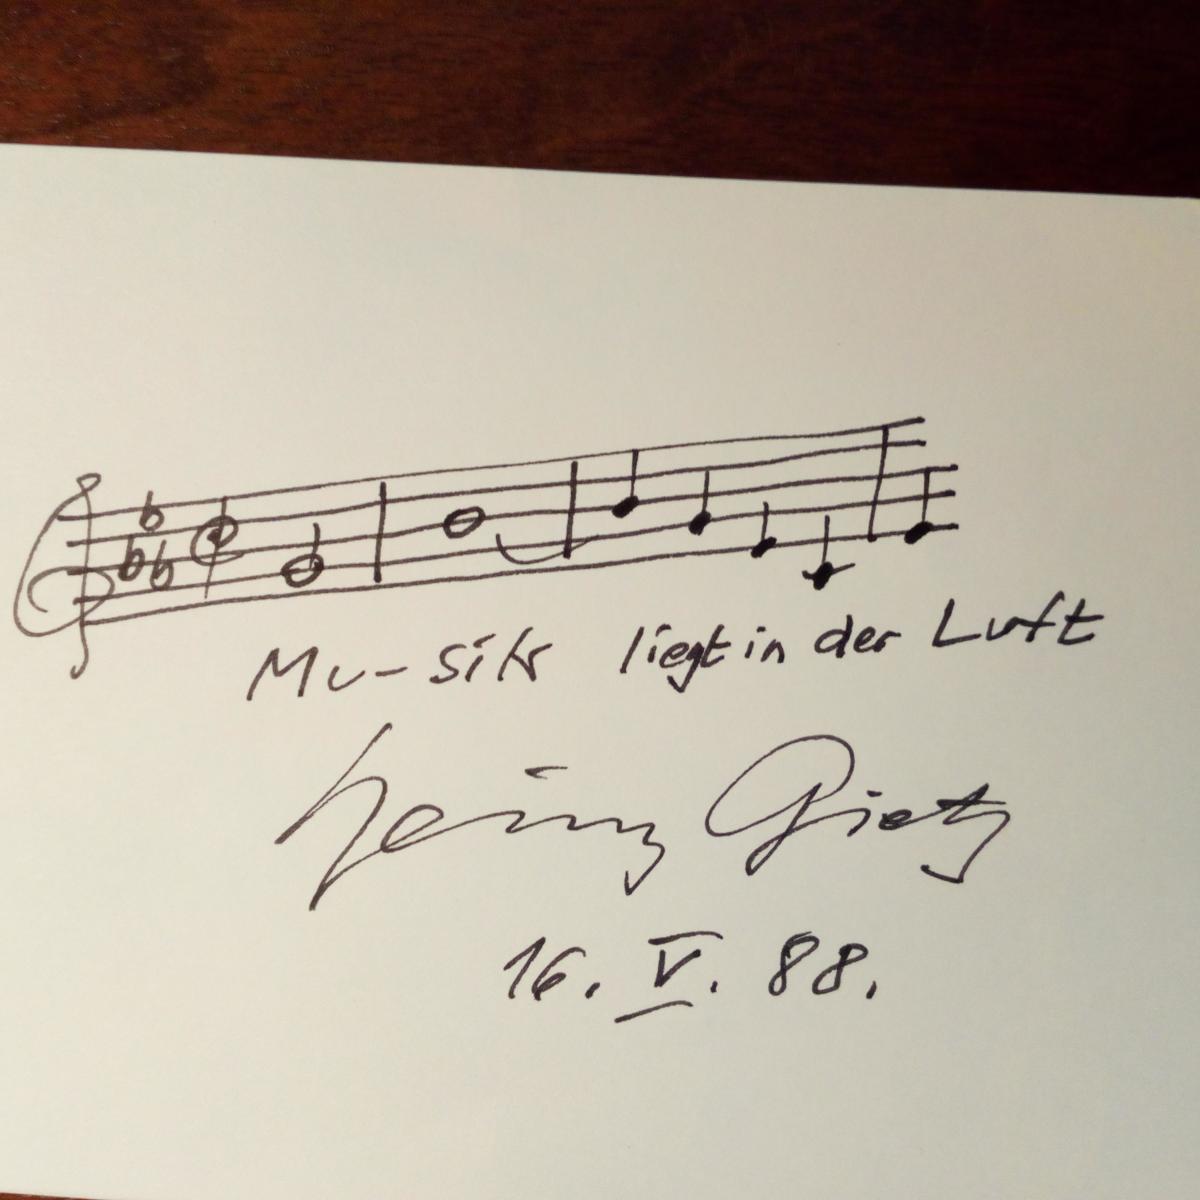 Mu-sik liegt in der Luft
Heinz Gietz
16. V. 88.